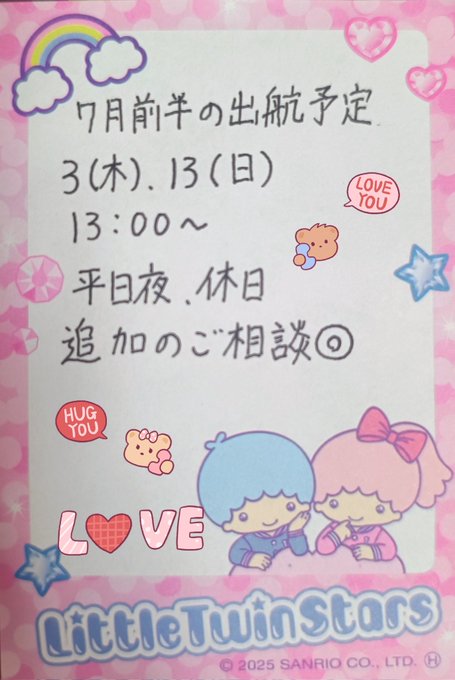 7月前半の出航予定
3(木)、13(日)
13:00～
平日夜、休日
追加のご相談◎
LOVE YOU
HUG YOU
LOVE
LittleTwinStars
© 2025 SANRIO CO., LTD. Ⓗ